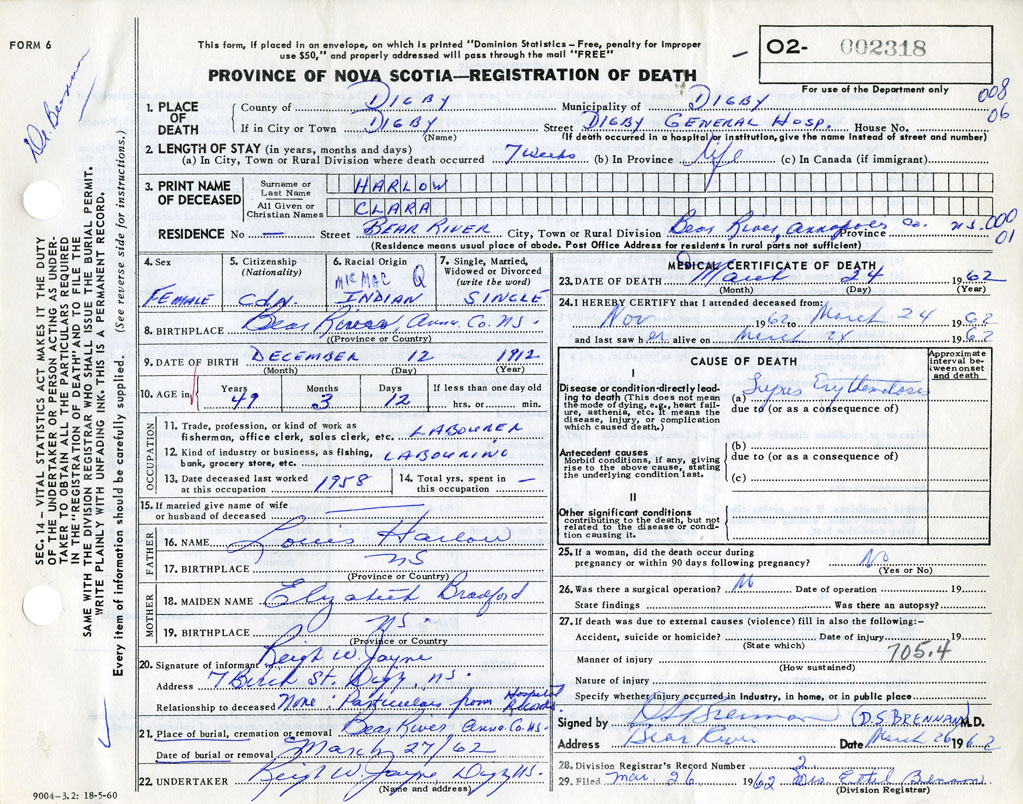 FORM 6
This form, if placed in an envelope, on which is printed "Dominion Statistics – Free, penalty for improper
use $50," and properly addressed will pass through the mail "FREE"
PROVINCE OF NOVA SCOTIA—REGISTRATION OF DEATH
O2- 002318
For use of the Department only
008
06
Dr. Brennan
SEC. 14 – VITAL STATISTICS ACT MAKES IT THE DUTY
OF THE UNDERTAKER OR PERSON ACTING AS UNDER-
TAKER TO OBTAIN ALL THE PARTICULARS REQUIRED
IN THE "REGISTRATION OF DEATH" AND TO FILE THE
SAME WITH THE DIVISION REGISTRAR WHO SHALL ISSUE THE BURIAL PERMIT.
WRITE PLAINLY WITH UNFADING INK. THIS IS A PERMANENT RECORD.
Every item of information should be carefully supplied. (See reverse side for instructions.)
1. PLACE OF DEATH
County of DIGBY Municipality of DIGBY
If in City or Town DIGBY Street DIGBY GENERAL HOSP. House No.
(Name) (If death occurred in a hospital or institution, give the name instead of street and number)
2. LENGTH OF STAY (in years, months and days)
(a) In City, Town or Rural Division where death occurred 7 weeks (b) In Province Life (c) In Canada (if immigrant)
3. PRINT NAME OF DECEASED
Surname or Last Name HARLOW
All Given or Christian Names CLARA
RESIDENCE No — Street BEAR RIVER City, Town or Rural Division Bear River, Annapolis Co. Province N.S. 000
01
(Residence means usual place of abode. Post Office Address for residents in rural parts not sufficient)
4. Sex FEMALE
5. Citizenship (Nationality) Cdn.
6. Racial Origin MIC MAC Q INDIAN
7. Single, Married, Widowed or Divorced (write the word) SINGLE
8. BIRTHPLACE Bear River, Anna. Co. N.S.
(Province or Country)
9. DATE OF BIRTH DECEMBER 12 1912
(Month) (Day) (Year)
10. AGE in Years 49 Months 3 Days 12 If less than one day old hrs. or min.
OCCUPATION
11. Trade, profession, or kind of work as
fisherman, office clerk, sales clerk, etc. LABOURER
12. Kind of industry or business, as fishing,
bank, grocery store, etc. LABOURING
13. Date deceased last worked
at this occupation 1958
14. Total yrs. spent in
this occupation —
15. If married give name of wife
or husband of deceased —
FATHER
16. NAME Louis Harlow
17. BIRTHPLACE NS
(Province or Country)
MOTHER
18. MAIDEN NAME Elizabeth Bradford
19. BIRTHPLACE NS.
(Province or Country
20. Signature of informant Leigh W. Jayne
Address 7 Birch St. Digby, N.S.
Relationship to deceased None: Particulars from Hospital Records
21. Place of burial, cremation or removal Bear River, Anna. Co. NS.
Date of burial or removal March 27/62
22. UNDERTAKER Leigh W. Jayne Digby NS.
(Name and address)
9004–3.2: 18-5-60
MEDICAL CERTIFICATE OF DEATH
23. DATE OF DEATH March 24 1962
(Month) (Day) (Year)
24. I HEREBY CERTIFY that I attended deceased from:
Nov 1962 to March 24 1962
and last saw her alive on March 24 1962
CAUSE OF DEATH
Approximate interval between onset and death
I
Disease or condition directly lead-
ing to death (This does not mean
the mode of dying, e.g., heart fail-
ure, asthenia, etc. It means the
disease, injury, or complication
which caused death.)
(a) Lupus
due to (or as a consequence of)
(b)
due to (or as a consequence of)
(c)
Antecedent causes
Morbid conditions, if any, giving
rise to the above cause, stating
the underlying condition last.
II
Other significant conditions
contributing to the death, but not
related to the disease or condi-
tion causing it.
25. If a woman, did the death occur during
pregnancy or within 90 days following pregnancy? No
(Yes or No)
26. Was there a surgical operation? Date of operation 19
State findings Was there an autopsy?
27. If death was due to external causes (violence) fill in also the following:–
Accident, suicide or homicide? Date of injury 19
(State which)
705.4
Manner of injury
(How sustained)
Nature of injury
Specify whether injury occurred in industry, in home, or in public place
Signed by D S Brennan (D.S. BRENNAN) M.D.
Address Bear River Date March 26 1962
28. Division Registrar's Record Number 2
29. Filed Mar. 26 1962 Ethel Brennan
(Division Registrar)